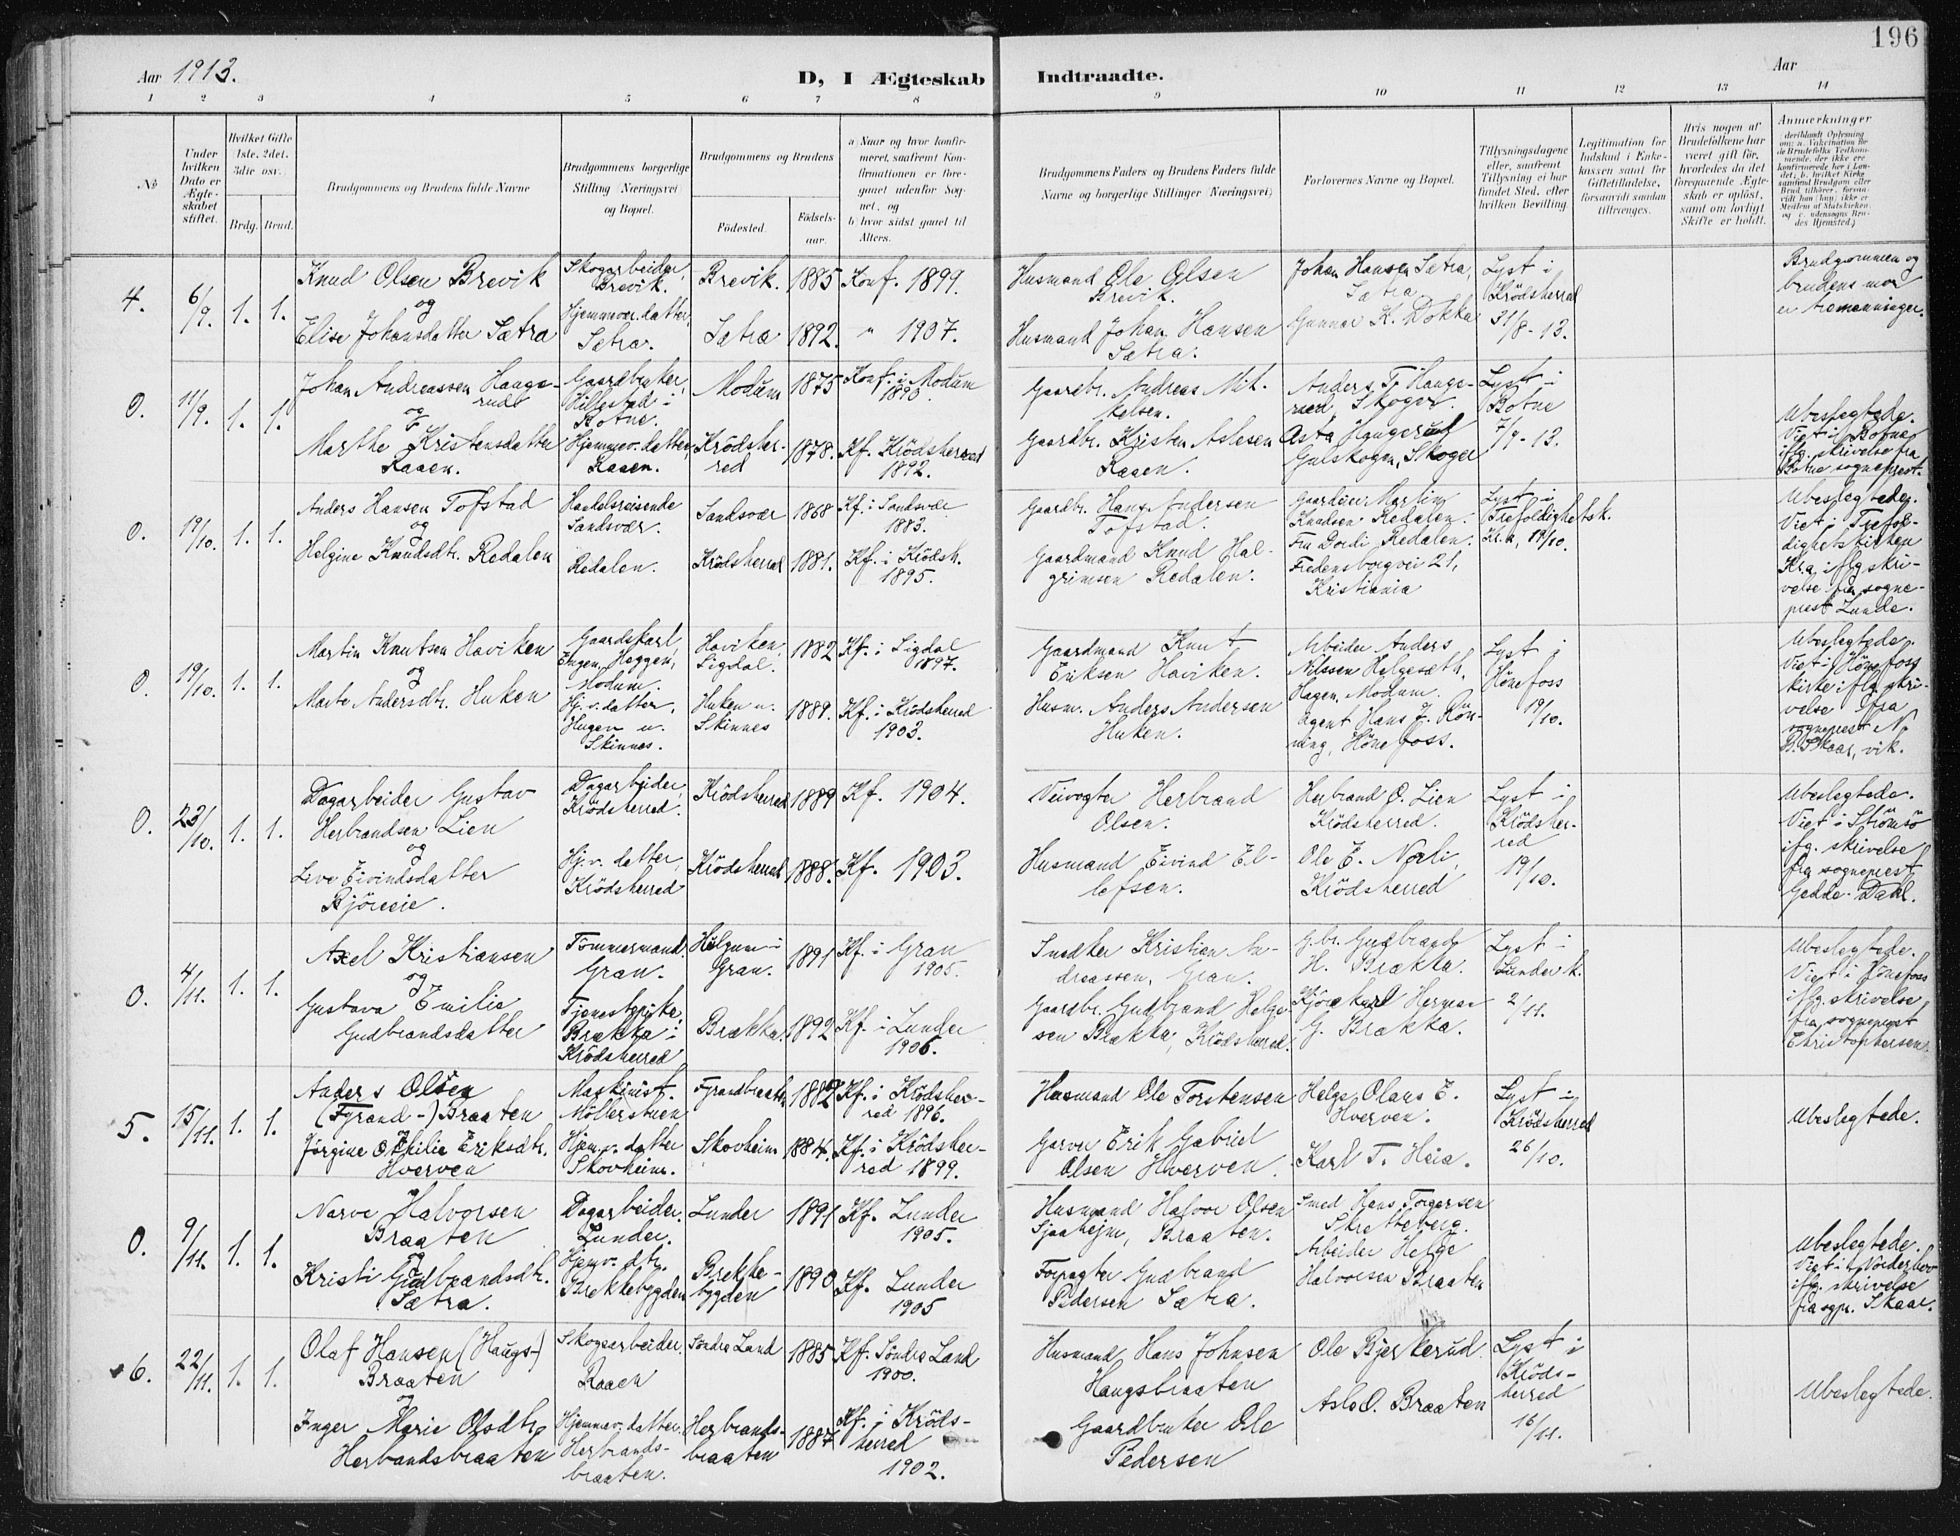 196
Aar 1913.
D, I Ægteskab Indtraadte.
Aar
1 2 3 4 5 6 7 8 9 10 11 12 13 14
No
Under hvilken Dato er Ægteskabet stiftet.
Hvilket Gifte 1ste, 2det, 3die osv.
Brdg. Brud.
Brudgommens og Brudens fulde Navne
Brudgommens borgerlige Stilling (Næringsvei) og Bopæl.
Brudgommens og Brudens
Fødested.
Fødselsaar.
a) Naar og hvor konfirmeret, saafremt Konfirmationen er foregaaet udenfor Sognet, og
b) hvor sidst gaaet til Alters.
Brudgommens Faders og Brudens Faders fulde Navne og borgerlige Stillinger (Næringsvei)
Forlovernes Navne og Bopæl.
Tillysningsdagene eller, saafremt Tillysning ei har fundet Sted, efter hvilken Bevilling
Legitimation for Indskud i Enkekassen samt for Giftetilladelse, forsaavidt saadan tiltrænges.
Hvis nogen af Brudefolkene har været gift før, hvorledes da det foregaaende Ægteskab er opløst, samt om lovligt Skifte er holdt.
Anmærkninger
4.
6/9.
1. 1.
Knud Olsen Brevik
og
Elise Johansdatter Sætra
Skogarbeider,
Brevik.
Hjemmev. datter,
Sætra.
Brevik. 1885
Sætra 1892.
Konf. 1899.
" 1907.
Husmand Ole Olsen
Brevik.
Husmand Johan Hansen
Sætra.
Johan Hansen Sætra,
Sætra
Gunnar K. Dokka
Lyst i
Krödsherred
31/8-13.
Brudgommen og
brudens mor
er tremenninger.
0.
11/9.
1. 1.
Johan Andreassen Haugs-
rud
og
Marthe Kristensdatter
Raaen.
Gaardbruker,
Hillestad i
Botne.
Hjemmev. datter
Raaen.
Modum 1875
Krödsher-
red 1878.
Konf. i Modum
1890.
Kf. Krödsherred
1892.
Gaardbr. Andreas Mik-
kelsen.
Gaardbr. Kristen Aslesen
Raaen.
Anders T. Haugs-
rud, Skoger.
Asta Haugerud
Gulskogen, Skoger
Lyst i
Botne
7/9-13.
Ubeslegtede.
Viet i Botne
iflg. skrivelse fra
Botne sogneprest.
0.
19/10.
1. 1.
Anders Hansen Tofstad
og
Helgine Knudsdtr. Redalen
Handelsreisende
Sandsvær.
Redalen.
Sandsvær 1868
Krödsherred 1881.
Kf. i Sandsvær
1883.
Kf. i Krödsh.
1895.
Gaardbr. Hans Andersen
Tofstad.
Gaardmand Knud Hal-
grimsen Redalen.
Gaardeier Martin
Knudsen Redalen.
Fru Dordi Redalen.
Fredensborgvei 21,
Kristiania
Lyst i
Trefoldighetsk.
Kr.a, 19/10.
Ubeslegtede.
Viet i Trefol-
dighetskirken
Kr.a iflg skri-
velse fra sogne-
prest Lunde.
0.
19/10.
1. 1.
Martin Knutsen Haviken
og
Marte Andersdtr. Huken
Gaardskarl,
Engen, Heggen,
Modum.
Hj.v. datter,
Hugen u.
Skinnes.
Haviken,
Sigdal. 1882
Huken u.
Skinnes 1889.
Kf. i Sigdal
1897.
Kf. i Krödsherred
1903.
Gaardmand Knut
Eriksen Haviken.
Husm. Anders Andersen
Huken.
Arbeider Anders
Nilssen Helgeseth,
Hagen, Modum.
Agent Hans J. Rön-
ning, Hönefoss.
Lyst i
Hönefoss
19/10.
Ubeslegtede.
Viet i Hönefoss
kirke iflg. skri-
velse fra
sogneprest N.
B. Skaar, vik.
0.
23/10.
1. 1.
Dagarbeider Gustav
Herbrandsen Lien
og
Live Eivindsdatter
Björeeie.
Dagarbeider,
Krödsherred.
Hj.v. datter,
Krödsherred
Krödsherred 1889
Krödsherred 1888.
Kf. 1904.
Kf. 1903.
Veivogter Herbrand
Olsen.
Husmand Eivind El-
lefsen.
Herbrand O. Lien
Krödsherred.
Ole E. Norli,
Krödsherred
Lyst i
Krödsher-
red
19/10.
Ubeslegtede.
Viet i Strömsö
ifg. skrivelse
fra sogneprest
Gedde-Dahl.
0.
4/11.
1. 1.
Axel Kristiansen
og
Gustava Emilie
Gudbrandsdatter
Tömmermand
Gran.
Tjenestepike,
Brækka i
Krödsherred
Gran. 1891
Brækka. 1892
Kf. i Gran
1905.
Kf. i Lunder
1906.
Snedker Kristian An-
dreassen, Gran.
Gaardbr. Gudbrand Helge-
sen Brækka, Krödsherred.
G.br. Gudbrand
H. Brækka.
Kjörekarl Herman
G. Brækka.
Lyst i
Lunder k.
2/11.
Ubeslegtede.
Viet i Hönefoss
iflg. skrivelse
fra sogneprest
Christophersen.
5.
15/11.
1. 1.
Anders Olsen
(Fyrand-) Braaten
og
Jörgine Otilie Eriksdtr.
Hverven
Maskinist.
Möllerstuen
Hjem.v. datter
Skovheim.
Fyrandbraaten 1882
Skovheim 1884.
Kf. i Krödsher-
red 1896.
Kf. i Krödsher-
red 1899.
Husmand Ole Torstensen
Garver Erik Gabriel
Olsen Hverven.
Helge Olaus E.
Hverven.
Karl T. Heia.
Lyst i
Krödsherred
26/10.
Ubeslegtede.
0.
9/11.
1. 1.
Narve Halvorsen
Braaten
og
Kristi Gudbrandsdtr.
Sætra.
Dagarbeider.
Lunder.
Hjemv. dtr.
Brekkebygden
Lunder 1891
Brekke-
bygden 1890
Kf. Lunder
1905.
Kf. Lunder
1905
Husmand Halvor Olsen
Sjaaheim, Braaten.
Forpagter Gudbrand
Pedersen Sætra.
Smed Hans Torgersen
Skretteberg.
Arbeider Helge
Halvorsen Braaten
Ubeslegtede.
Viet i Norderhov
iflg. skrivelse
fra sgpr. Skaar.
6.
22/11.
1. 1.
Olaf Hansen (Haugs-)
Braaten
og
Inger Marie Olsdtr.
Herbandsbraaten
Skogsarbeider.
Raaen
Hjemmev. datter.
Herbrands-
braaten.
Söndre Land 1885
Herbrands-
braaten 1887
Kf. Söndre Land
1900.
Kf. i Kröds-
herred
1902.
Husmand Hans Johnsen
Haugsbraaten
Gaardbruker Ole
Pedersen
Ole Bjerkerud.
Asle O. Braaten
Lyst i
Kröds-
herred
16/11.
Ubeslegtede.